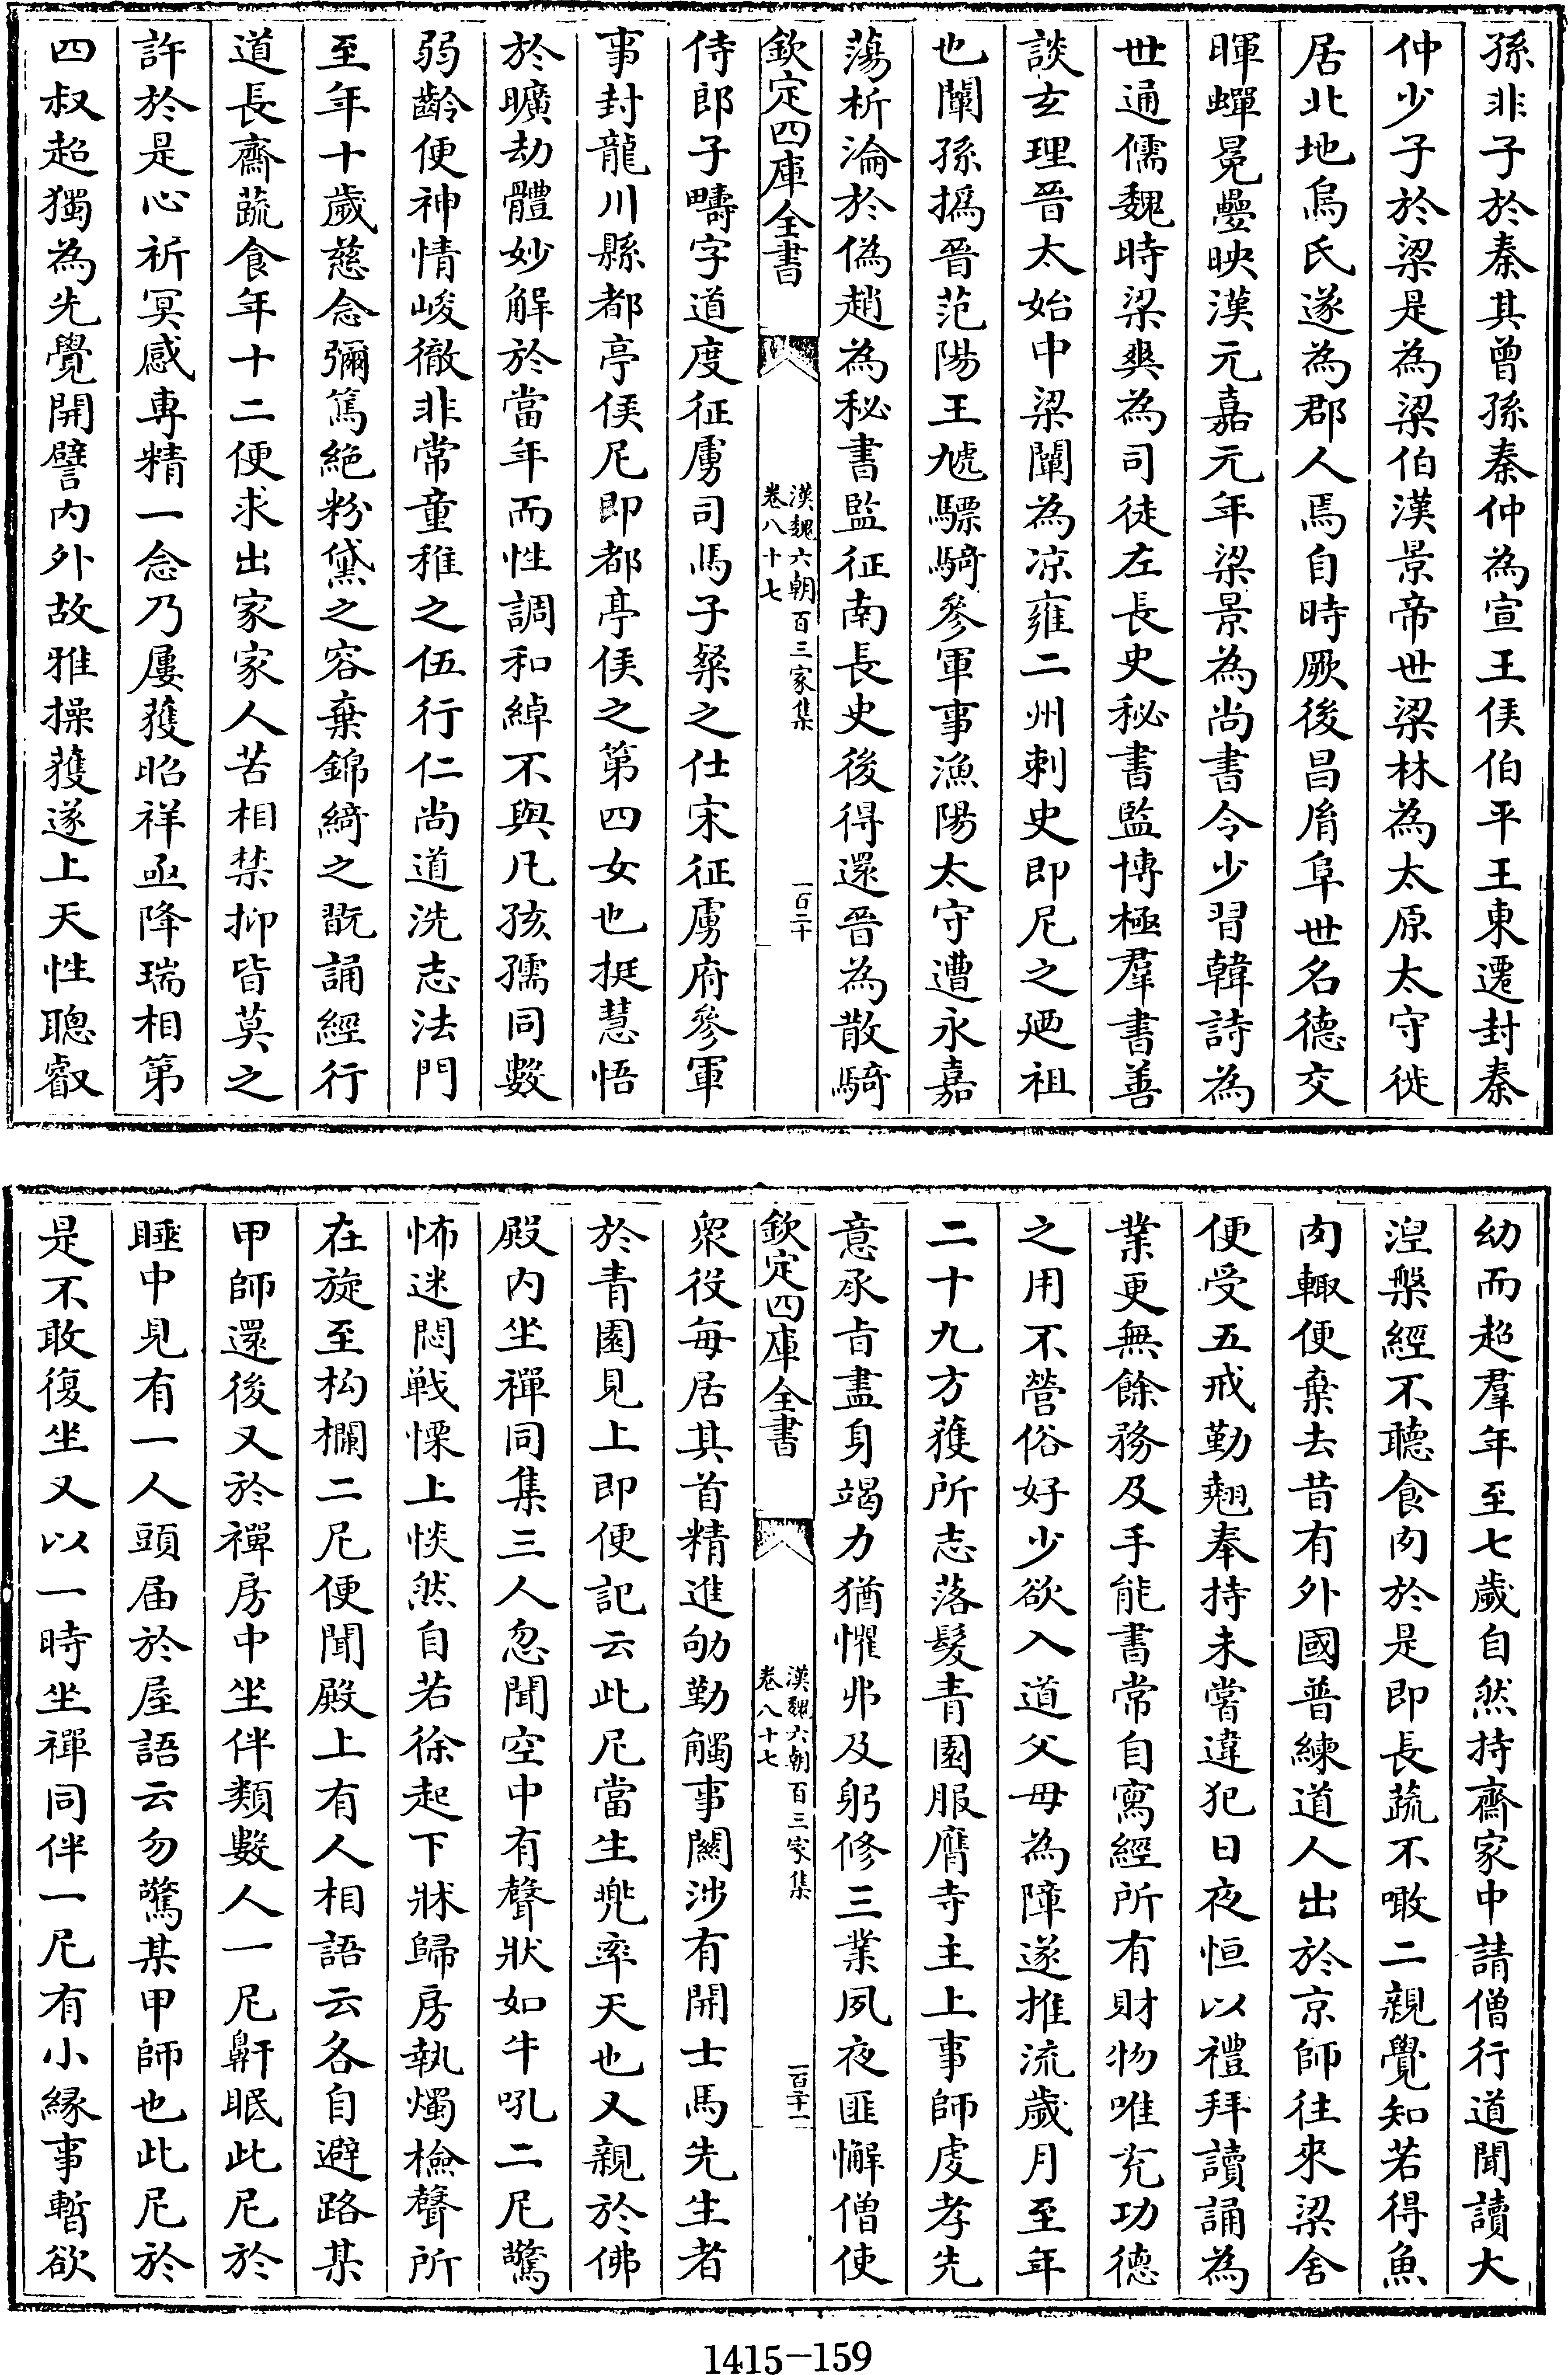 孫非子於秦其曾孫秦仲為宣王侯伯平王東遷封秦
仲少子於梁是為梁伯漢景帝世梁林為太原太守徙
居北地烏氏遂為郡人焉自時厥後昌胤阜世名德交
暉蟬冕疊映漢元嘉元年梁景為尚書令少習韓詩為
世通儒魏時梁爽為司徒左長史秘書監博極羣書善
談玄理晉太始中梁闡為涼雍二州刺史即尼之廼祖
也闡孫撝晉范陽王虓驃騎參軍事漁陽太守遭永嘉
蕩析淪於偽趙為秘書監征南長史後得還晉為散騎
欽定四庫全書
漢魏六朝百三家集
卷八十七
一百二十
侍郎子疇字道度征虜司馬子粲之仕宋征虜府參軍
事封龍川縣都亭侯尼即都亭侯之第四女也挺慧悟
於曠劫體妙解於當年而性調和綽不與凡孩孺同數
弱齡便神情峻徹非常童稚之伍行仁尚道洗志法門
至年十歲慈念彌篤絕粉黛之容棄錦綺之翫誦經行
道長齋蔬食年十二便求出家家人苦相禁抑皆莫之
許於是心祈冥感專精一念乃屢獲昭祥亟降瑞相第
四叔超獨為先覺開譬內外故雅操獲遂上天性聰叡
幼而超羣年至七歲自然持齋家中請僧行道聞讀大
湼槃經不聽食肉於是即長蔬不噉二親覺知若得魚
肉輙便棄去昔有外國普練道人出於京師往來梁舍
便受五戒勤翹奉持未嘗違犯日夜恒以禮拜讀誦為
業更無餘務及手能書常自寫經所有財物唯充功德
之用不營俗好少欲入道父母為障遂推流歲月至年
二十九方獲所志落髮青園服膺寺主上事師虔孝先
意承旨盡身竭力猶懼弗及躬修三業夙夜匪懈僧使
欽定四庫全書
漢魏六朝百三家集
卷八十七
一百二十一
衆役每居其首精進劬勤觸事關涉有開士馬先生者
於青園見上即便記云此尼當生兜率天也又親於佛
殿內坐禪同集三人忽聞空中有聲狀如牛吼二尼驚
怖迷悶戰慄上惔然自若徐起下牀歸房執燭檢聲所
在旋至构欄二尼便聞殿上有人相語云各自避路某
甲師還後又於禪房中坐伴類數人一尼鼾眠此尼於
睡中見有一人頭届於屋語云勿驚某甲師也此尼於
是不敢復坐又以一時坐禪同伴一尼有小緣事暫欲
1415-159